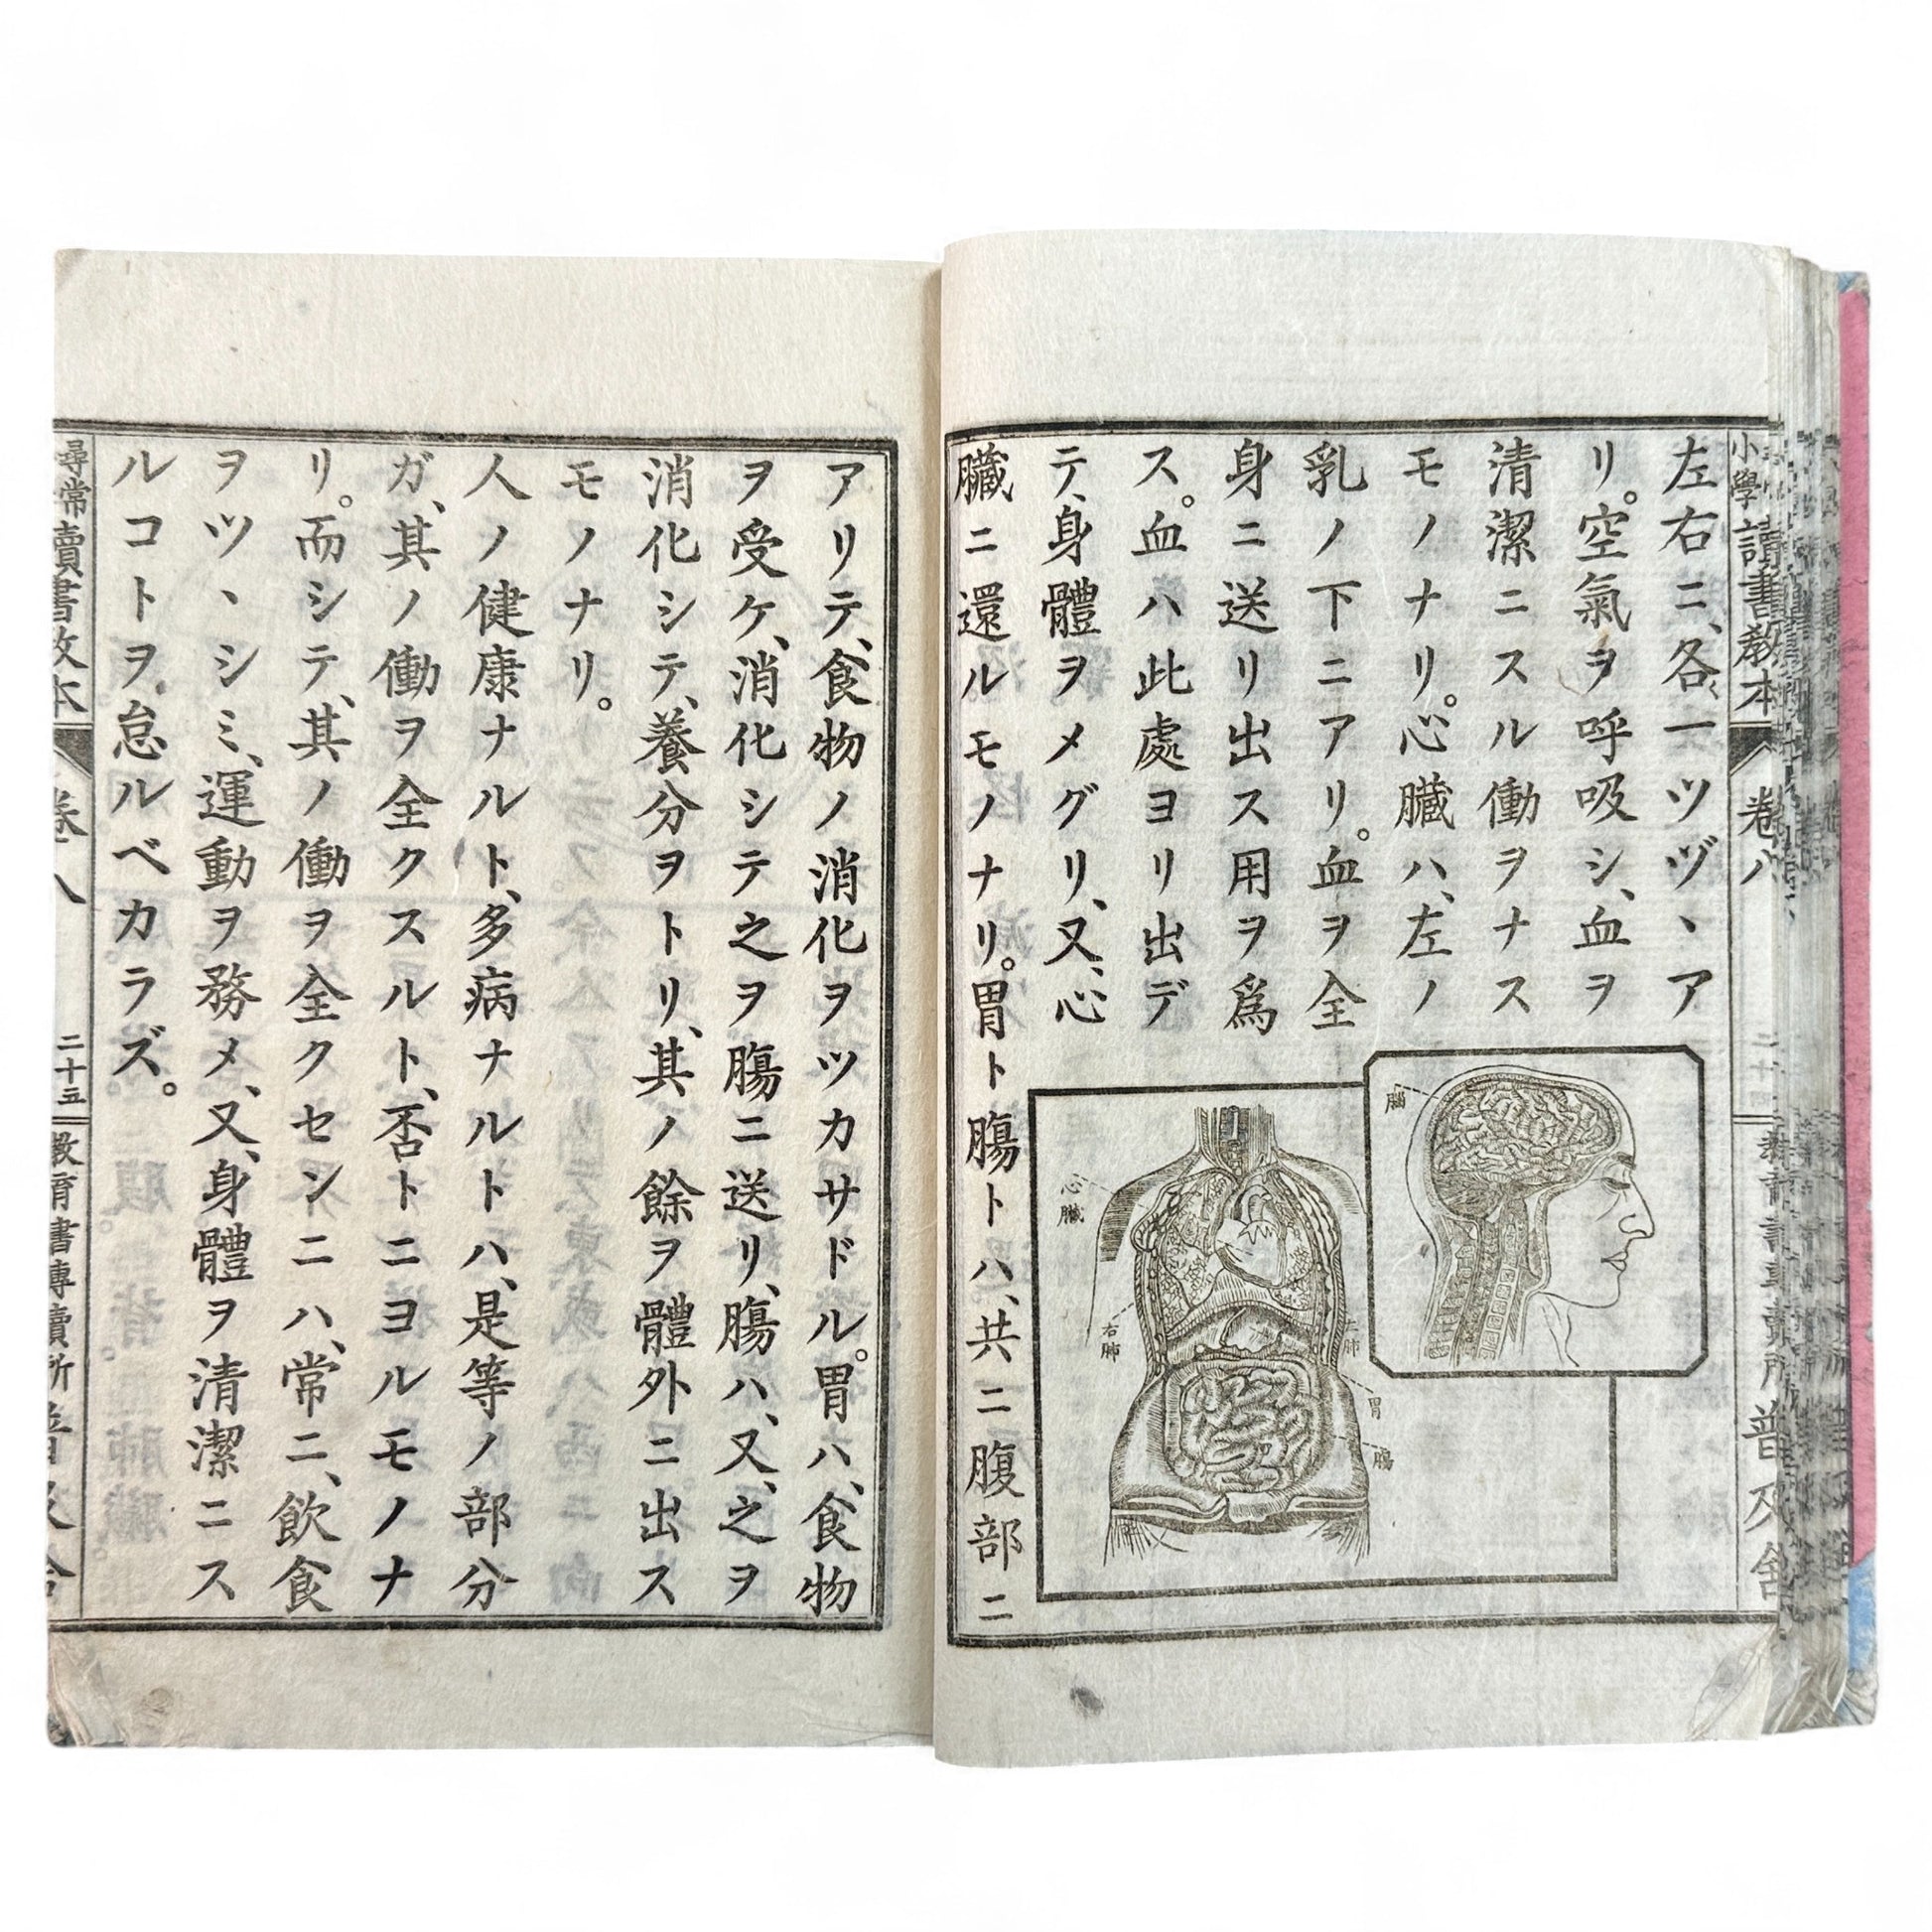 小學讀書教本
卷八
普及舍
左右ニ、各、一ツヅヽア
リ。空氣ヲ呼吸シ、血ヲ
清潔ニスル働ヲナス
モノナリ。心臓ハ、左ノ
乳ノ下ニアリ。血ヲ全
身ニ送リ出ス用ヲ爲
ス。血ハ此處ヨリ出デ
テ、身體ヲメグリ、又、心
臓ニ還ルモノナリ。胃ト腸トハ、共ニ腹部ニ
腦
心臓
右肺
左肺
胃
腸
アリテ、食物ノ消化ヲツカサドル。胃ハ、食物
ヲ受ケ、消化シテ之ヲ腸ニ送リ、腸ハ、又、之ヲ
消化シテ、養分ヲトリ、其ノ餘ヲ體外ニ出ス
モノナリ。
人ノ健康ナルト、多病ナルトハ、是等ノ部分
ガ、其ノ働ヲ全クスルト、否トニヨルモノナ
リ。而シテ、其ノ働ヲ全クセンニハ、常ニ、飲食
ヲツヽシミ、運動ヲ務メ、又、身體ヲ清潔ニス
ルコトヲ、怠ルベカラズ。
尋常讀書教本
卷八
二十五
教育書專賣所普及舍